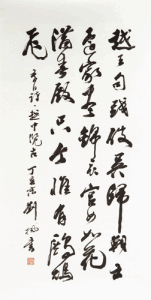 越王句践破吴归战士
还家尽锦衣宫女如花
满春殿只今惟有鹧鸪
飞
李白诗越中览古丁亥
书